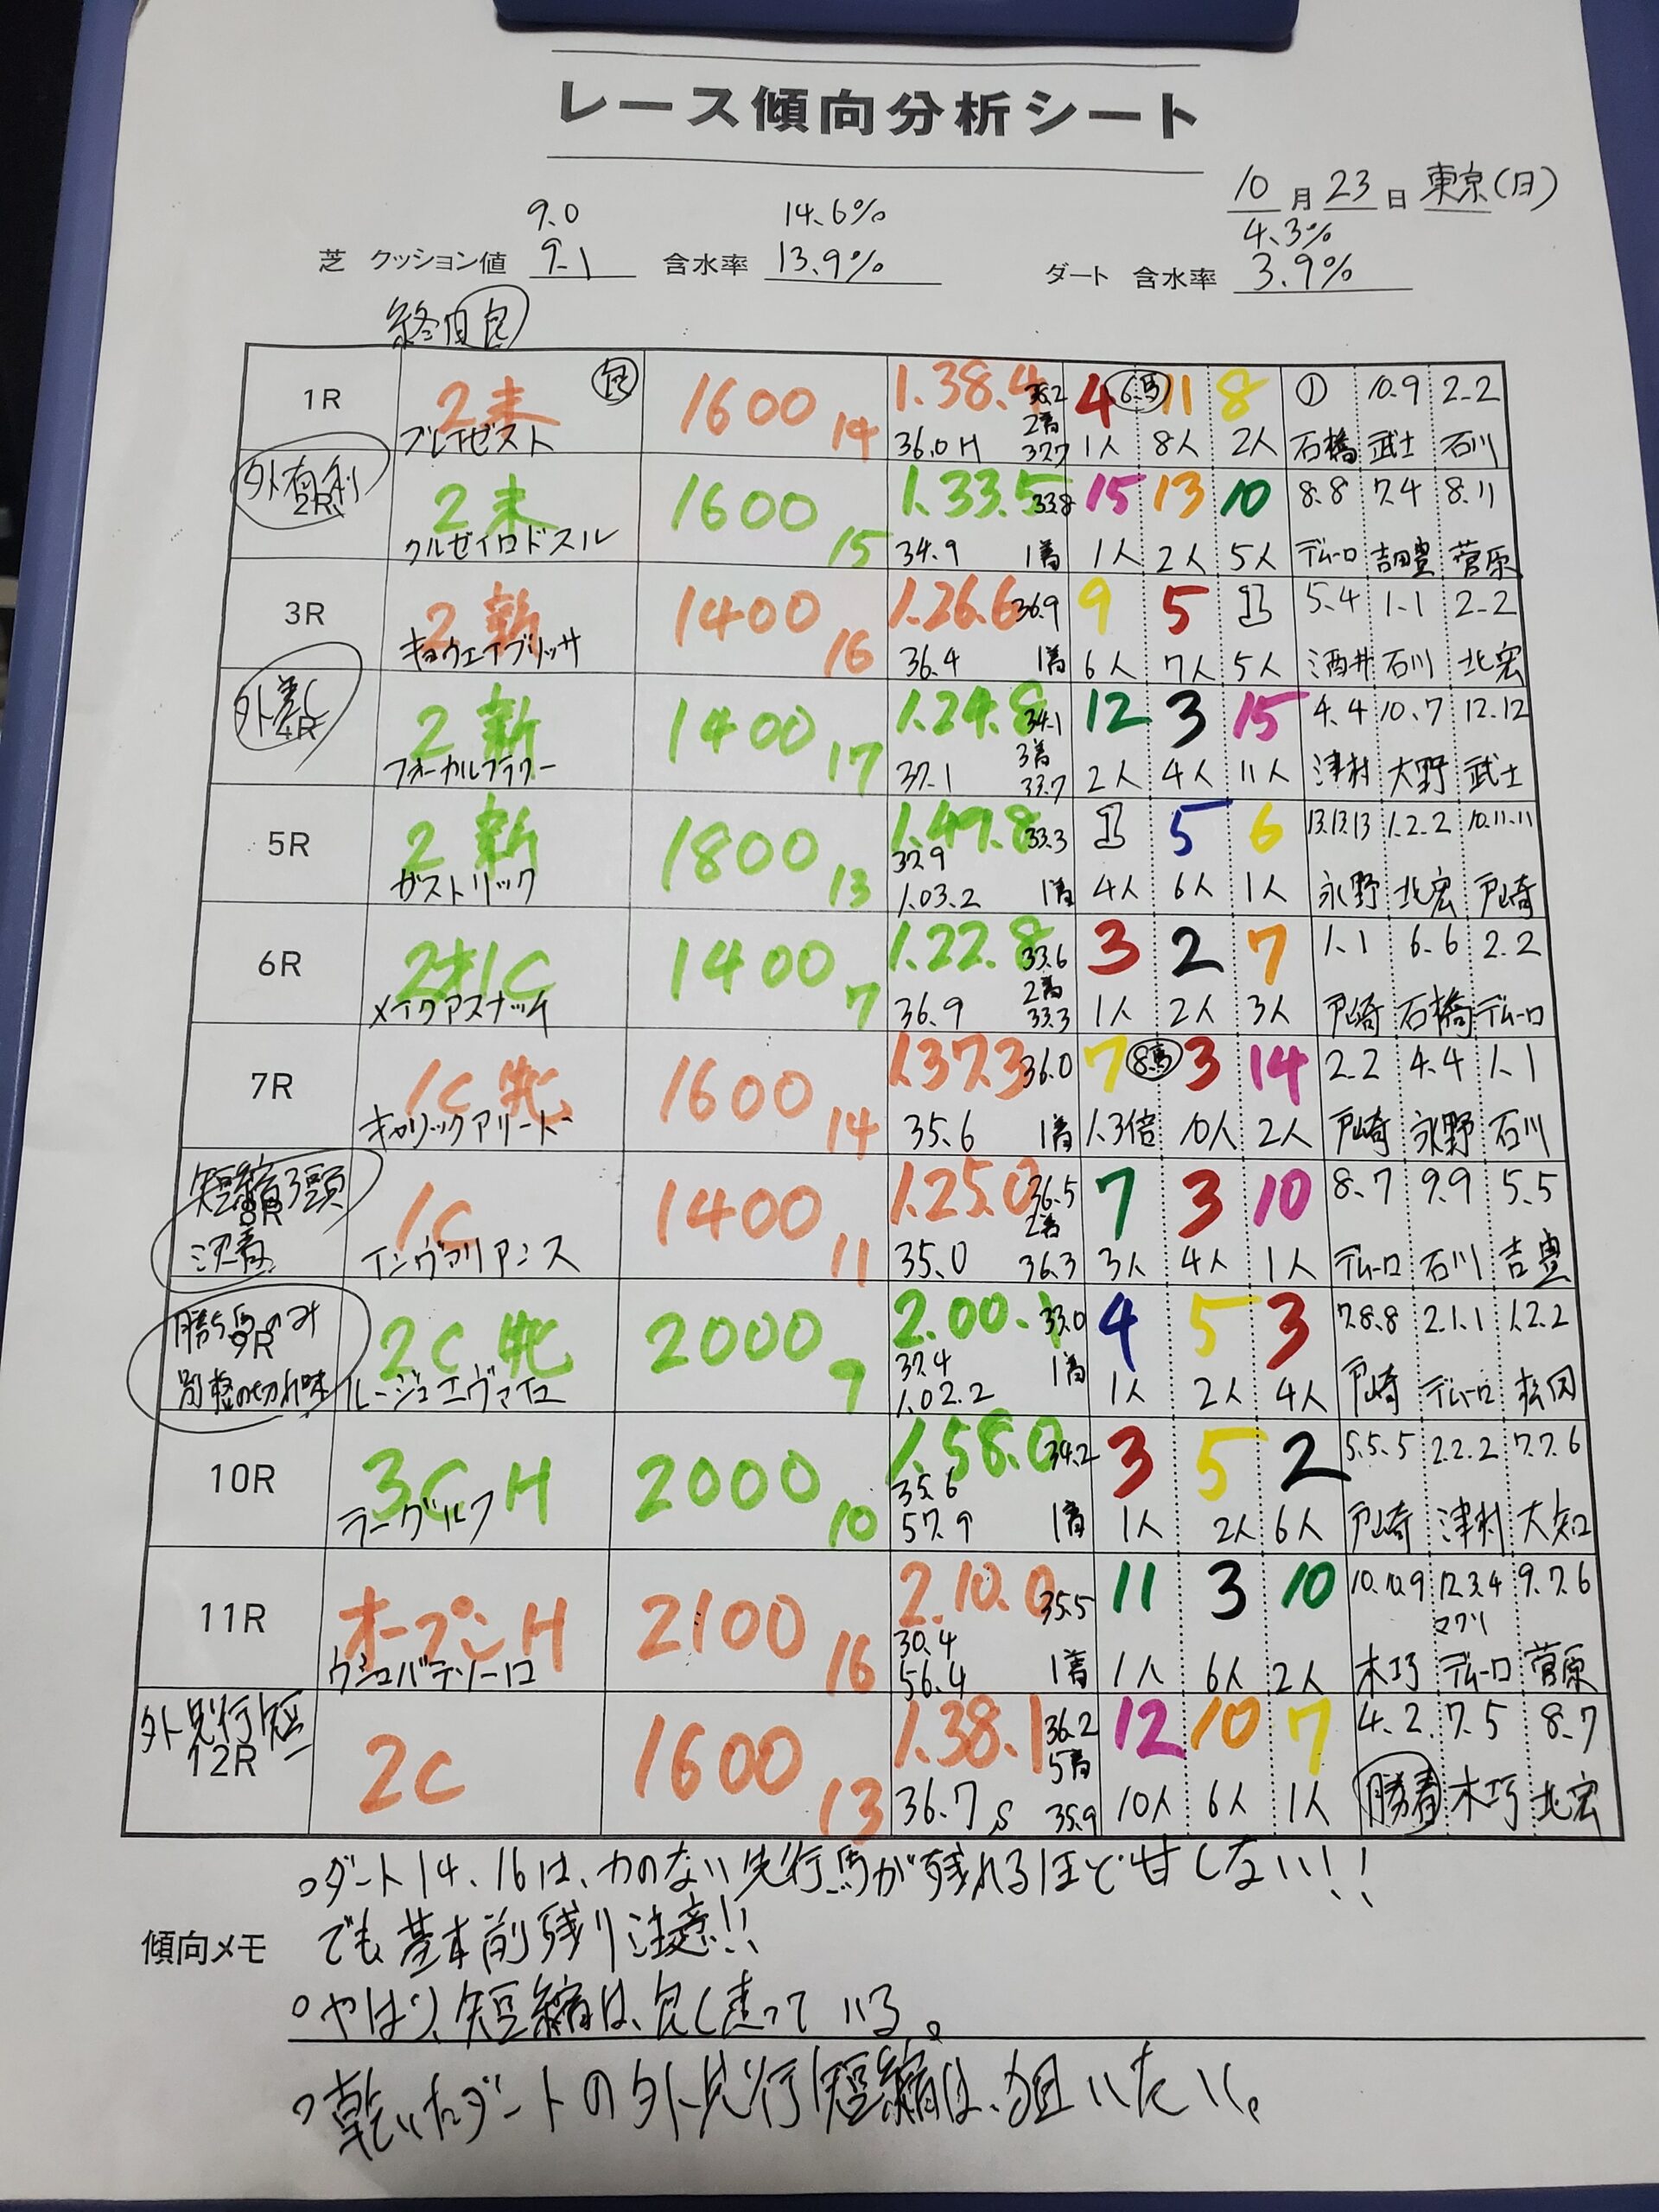 レース傾向分析シート
10月23日 東京(日)
9.0 14.6% 4.3%
芝 クッション値 9.1 含水率 13.9% ダート 含水率 3.9%
終日良
1R 2未 良 1600 14 1.38.4 4 6馬 11 8 ① 10.9 2.2
36.0 H 2着 37.7 1人 8人 2人 石橋 武士 石川
外有利
2R 2未 1600 15 1.33.5 33.8 15 13 10 8.8 7.4 8.11
クルゼイロドスル 34.9 1着 1人 2人 5人 デムーロ 吉田豊 菅原
3R 2新 1400 16 1.26.6 36.9 9 5 1 5.4 1.1 2.2
キョウエイブリッサ 36.4 1着 6人 7人 5人 酒井 石川 北宏
外差し
4R 2新 1400 17 1.24.8 34.1 12 3 15 4.4 10.7 12.12
フォーカルフラワー 37.1 3着 33.7 2人 4人 11人 津村 大野 武士
5R 2新 1800 13 1.49.8 33.3 1 5 6 13.13.13 1.2.2 10.11.11
37.9
ガストリック 1.03.2 1着 4人 6人 1人 永野 北宏 戸崎
6R 2才1C 1400 7 1.22.8 33.6 3 2 7 1.1 6.6 2.2
メイクアスナッチ 36.9 2着 33.3 1人 2人 3人 戸崎 石橋 デムーロ
7R 1C 牝 1600 14 1.37.3 36.0 7 8馬 3 14 2.2 4.4 1.1
キャリックアリード 35.6 1着 1.3倍 10人 2人 戸崎 永野 石川
短縮3頭
8R 1C 1400 11 1.25.0 36.5 7 3 10 8.7 9.9 5.5
インヴァリアンス 35.0 2着 36.3 3人 4人 1人 デムーロ 石川 吉豊
勝ち馬のみ
9R 2C 牝 2000 9 2.00.1 33.0 4 5 3 7.8.8 2.1.1 1.2.2
37.4
別格の切れ味 ルージュエヴァイユ 1.02.2 1着 1人 2人 4人 戸崎 デムーロ 松岡
10R 3C H 2000 10 1.58.0 34.2 3 5 2 5.5.5 2.2.2 7.7.6
35.6
ラーグルフ 57.9 1着 1人 2人 6人 戸崎 津村 大知
11R オープンH 2100 16 2.10.0 35.5 11 3 10 10.10.9 12.3.4 9.7.6
30.4 マクリ
ウシュバテソーロ 56.4 1着 1人 6人 2人 木巧 デムーロ 菅原
外先行短
12R 2C 1600 13 1.38.1 36.2 12 10 7 4.2 7.5 8.7
36.7 S 5着 35.9 10人 6人 1人 勝春 木巧 北宏
○ダート14、16は、力のない先行馬が残れるほど甘くない!!
傾向メモ でも基本前残り注意!!
○やはり、短縮は、良く走っている。
○乾いたダートの外先行短縮は、狙いたい。